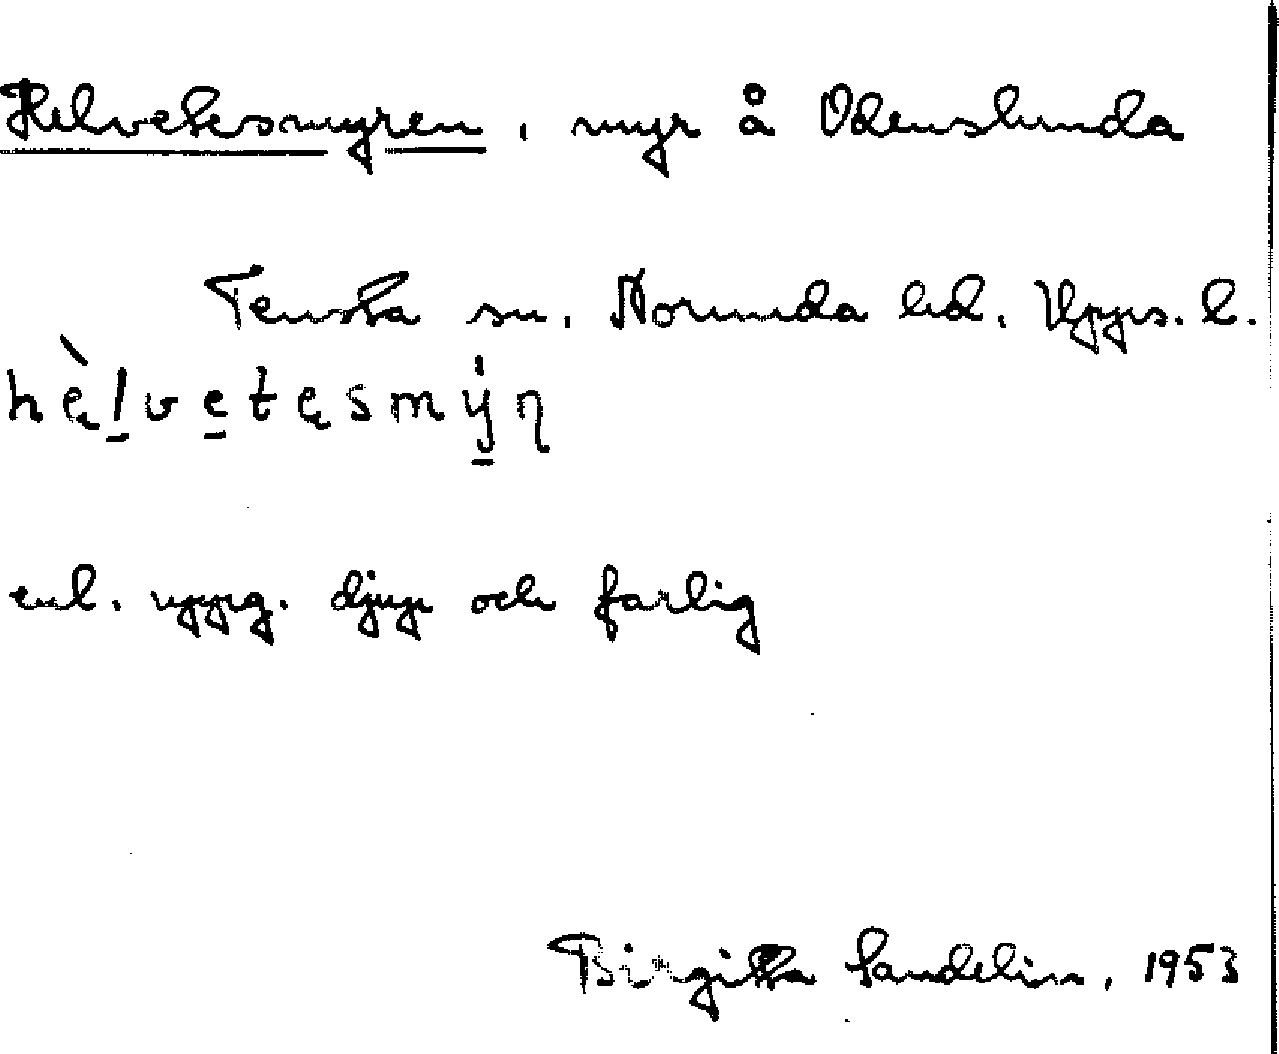 Helvetesmyren, myr å Odenslunda
Tensta sn. Norunda hd. Upps. l.
hę̀ḻve̱tęsmẏ̱ɳ
enl. uppg. djup och farlig
Birgitta Sandelin, 1953